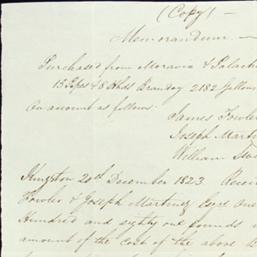 (Copy) —
Memorandum —
Purchased from Moravia &
15 Pps & 8 Hhds Brandy 2182 Gallons
On account as follows.
James Fowler
Joseph Marti
William
Kingston 20th December 1823. Receiv
Fowler & Joseph Martinez Esqre One
Hundred and eighty one pounds
amount of the Cost of the above B